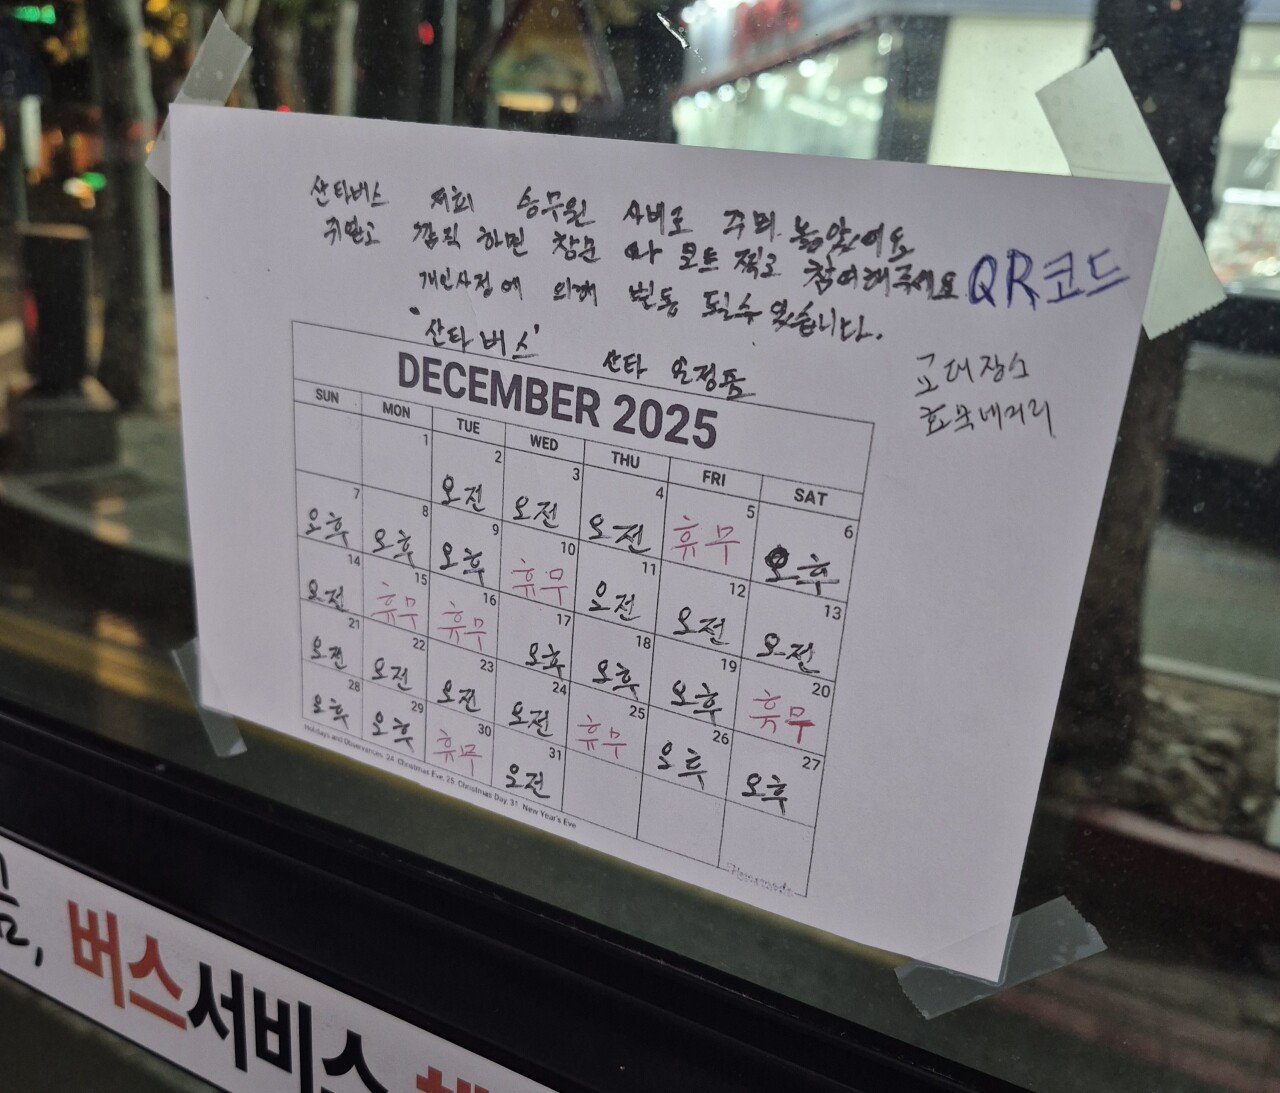 산타버스 저희 승무원 사비로 주며 놓았어요
깜직 하면 창문 와 코트 찍고 참여해주세요 QR코드
개인사정에 의해 변동 될수 있습니다.
'산타버스' 산타
교대장소
DECEMBER 2025
SUN MON TUE WED THU FRI SAT
1 2 3 4 5 6
오전 오전 오전 휴무 오후
7 8 9 10 11 12 13
오후 오후 오후 휴무 오전 오전 오전
14 15 16 17 18 19 20
오전 휴무 휴무 오후 오후 오후 휴무
21 22 23 24 25 26 27
오전 오전 오전 오전 휴무 오후 오후
28 29 30 31
오후 오후 휴무 오전
Holidays and Observances: 24 Christmas Eve, 25 Christmas Day, 31 New Year's Eve
버스서비스